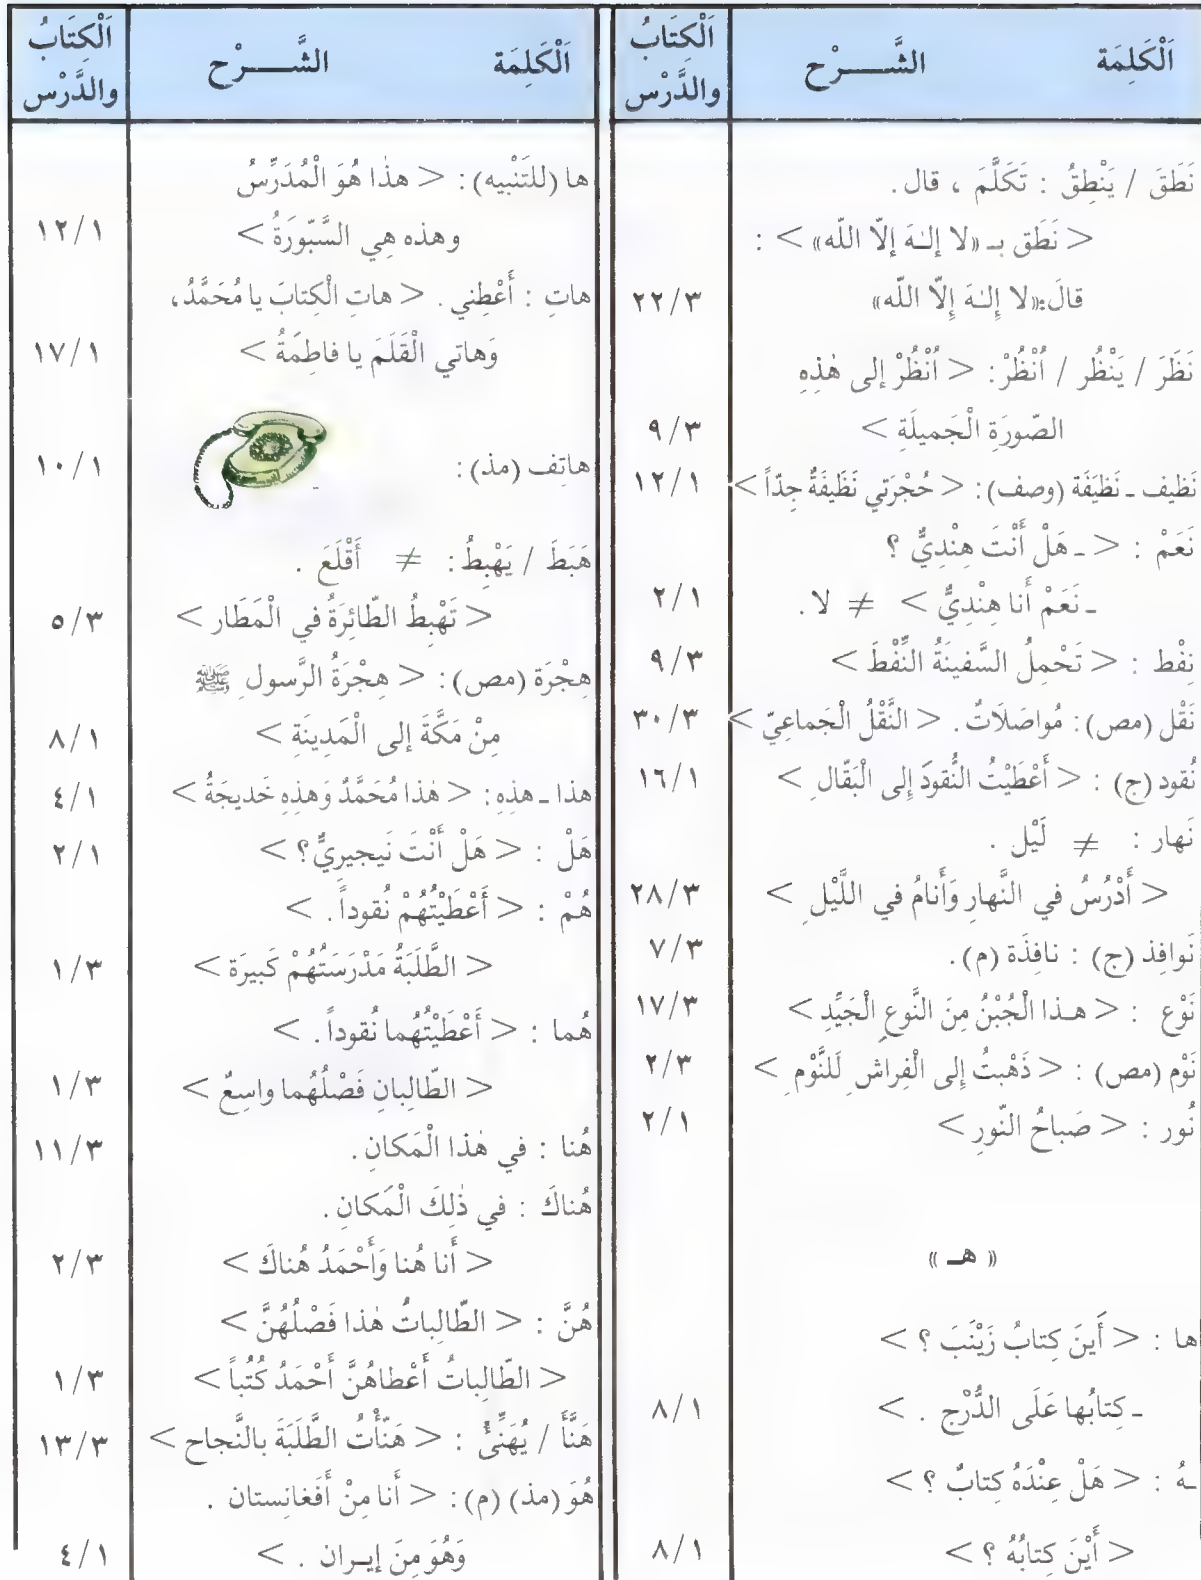 اَلْكَلِمَة الشَّـــرْح اَلْكِتَابُ والدَّرْس
نَطَقَ / يَنْطِقُ : تَكَلَّمَ ، قال .
< نَطَق بـ «لا إلـٰهَ إلّا اللّه» > :
قالَ:«لا إلـٰهَ إِلّا اللّه» ٢٢/٣
نَظَرَ / يَنْظُر / اُنْظُرْ: < اُنْظُرْ إلى هٰذِهِ
الصّورَةِ الْجَميلَةِ > ٩/٣
نَظيف ـ نَظيَفَة (وصف): < حُجْرَتي نَظَيفَةٌ جِدّاً > ١٢/١
نَعَمْ : < ـ هَلْ أَنْتَ هِنْدِيٌّ ؟
ـ نَعَمْ أَنا هِنْدِيٌّ > ≠ لا . ٢/١
نِفْط : < تَحْمِلُ السَّفينَةُ النِّفْطَ > ٩/٣
نَقْل (مص): مُواصَلَاتٌ . < النَّقْلُ الْجَماعِيّ > ٣٠/٣
نُقود (ج) : < أَعْطَيْتُ النُّقودَ إِلى الْبَقّالِ > ١٦/١
نَهار : ≠ لَيْل .
< أَدْرُسُ في النَّهارِ وَأَنامُ في اللَّيْلِ > ٢٨/٣
نَوافِذ (ج) : نافِذَة (م) . ٧/٣
نَوْع : < هـذا الْجُبْنُ مِنَ النَّوعِ الْجَيِّدِ > ١٧/٣
نَوْم (مص) : < ذَهْبتُ إِلى الْفِراشِ لَلنَّوْمِ > ٢/٣
نُور : < صَباحُ النّورِ > ٢/١
« هـ »
ها : < أَينَ كِتابُ زَيْنَبَ ؟ >
ـ كِتابُها عَلَى الدُّرْجِ . > ٨/١
ـهُ : < هَلْ عِنْدَهُ كِتابٌ ؟ >
< أَيْنَ كِتابُهُ ؟ > ٨/١
اَلْكَلِمَة الشَّـــرْح اَلْكِتَابُ والدَّرْس
ها (للتَنْبيه) : < هذٰا هُوَ الْمُدَرِّسُ
وهذه هِي السَّبّورَةُ > ١٢/١
هاتِ : أَعْطِني . < هاتِ الْكِتابَ يا مُحَمَّدُ،
وَهاتي الْقَلَمَ يا فاطِمَةُ > ١٧/١
هاتِف (مذ) : ١٠/١
هَبَطَ / يَهْبِطُ : ≠ أَقْلَعَ .
< تَهْبِطُ الطّائِرَةُ في الْمَطَار > ٥/٣
هِجْرَة (مص) : < هِجْرَةُ الرَّسولِ ﷺ
مِنْ مَكَّةَ إلى الْمَدِينَةِ > ٨/١
هذا ـ هذِهِ : < هٰذا مُحَمَّدٌ وَهٰذِهِ خَديجَةُ > ٤/١
هَلْ : < هَلْ أَنْتَ نَيجيرِيٌّ؟ > ٢/١
هُمْ : < أَعْطَيْتُهُمْ نُقوداً . >
< الطَّلَبَةُ مَدْرَسَتُهُمْ كَبيرَة > ١/٣
هُما : < أَعْطَيْتُهُما نُقوداً . >
< الطّالِبانِ فَصْلُهُما واسِعٌ > ١/٣
هُنا : في هٰذا الْمَكانِ . ١١/٣
هُناكَ : في ذٰلِكَ الْمَكانِ .
< أَنا هُنا وَأَحْمَدُ هُناكَ > ٢/٣
هُنَّ : < الطّالِباتُ هٰذا فَصْلُهُنَّ >
< الطّالِباتُ أَعْطاهُنَّ أَحْمَدُ كُتُباً > ١/٣
هَنَّأَ / يُهَنِّئُ : < هَنّأْتُ الطَّلَبَةَ بالنَّجاحِ > ١٣/٣
هُوَ (مذ) (م) : < أَنا مِنْ أَفَغانِستان .
وَهُوَ مِنَ إيـران . > ٤/١